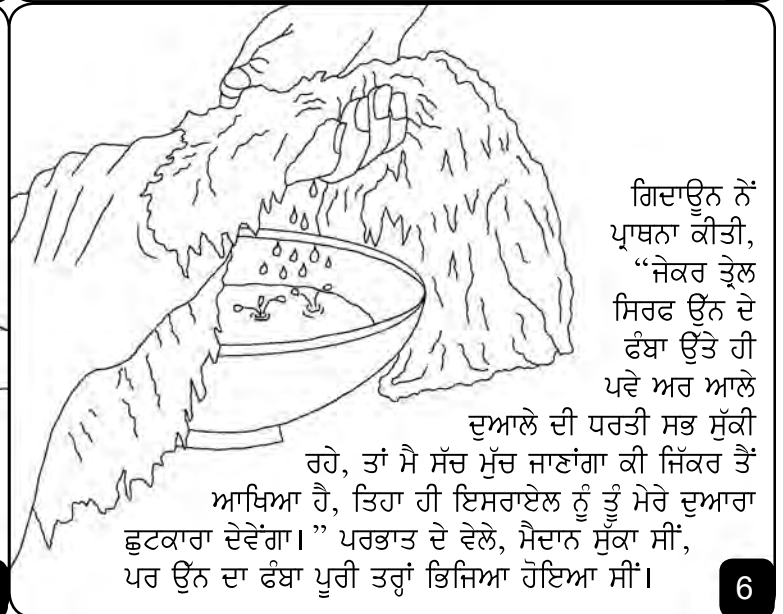 ਗਿਦਾਊਨ ਨੇਂ
ਪ੍ਰਾਥਨਾ ਕੀਤੀ,
“ਜੇਕਰ ਤ੍ਰੇਲ
ਸਿਰਫ ਉੱਨ ਦੇ
ਫੰਬਾ ਉੱਤੇ ਹੀ
ਪਵੇ ਅਰ ਆਲੇ
ਦੁਆਲੇ ਦੀ ਧਰਤੀ ਸਭ ਸੁੱਕੀ
ਰਹੇ, ਤਾਂ ਮੈ ਸੱਚ ਮੁੱਚ ਜਾਣਾਂਗਾ ਕੀ ਜਿੱਕਰ ਤੈਂ
ਆਖਿਆ ਹੈ, ਤਿਹਾ ਹੀ ਇਸਰਾਏਲ ਨੂੰ ਤੂੰ ਮੇਰੇ ਦੁਆਰਾ
ਛੁਟਕਾਰਾ ਦੇਵੇਂਗਾ। ” ਪਰਭਾਤ ਦੇ ਵੇਲੇ, ਮੈਦਾਨ ਸੁੱਕਾ ਸੀਂ,
ਪਰ ਉੱਨ ਦਾ ਫੰਬਾ ਪੂਰੀ ਤਰ੍ਹਾਂ ਭਿਜਿਆ ਹੋਇਆ ਸੀਂ।
6